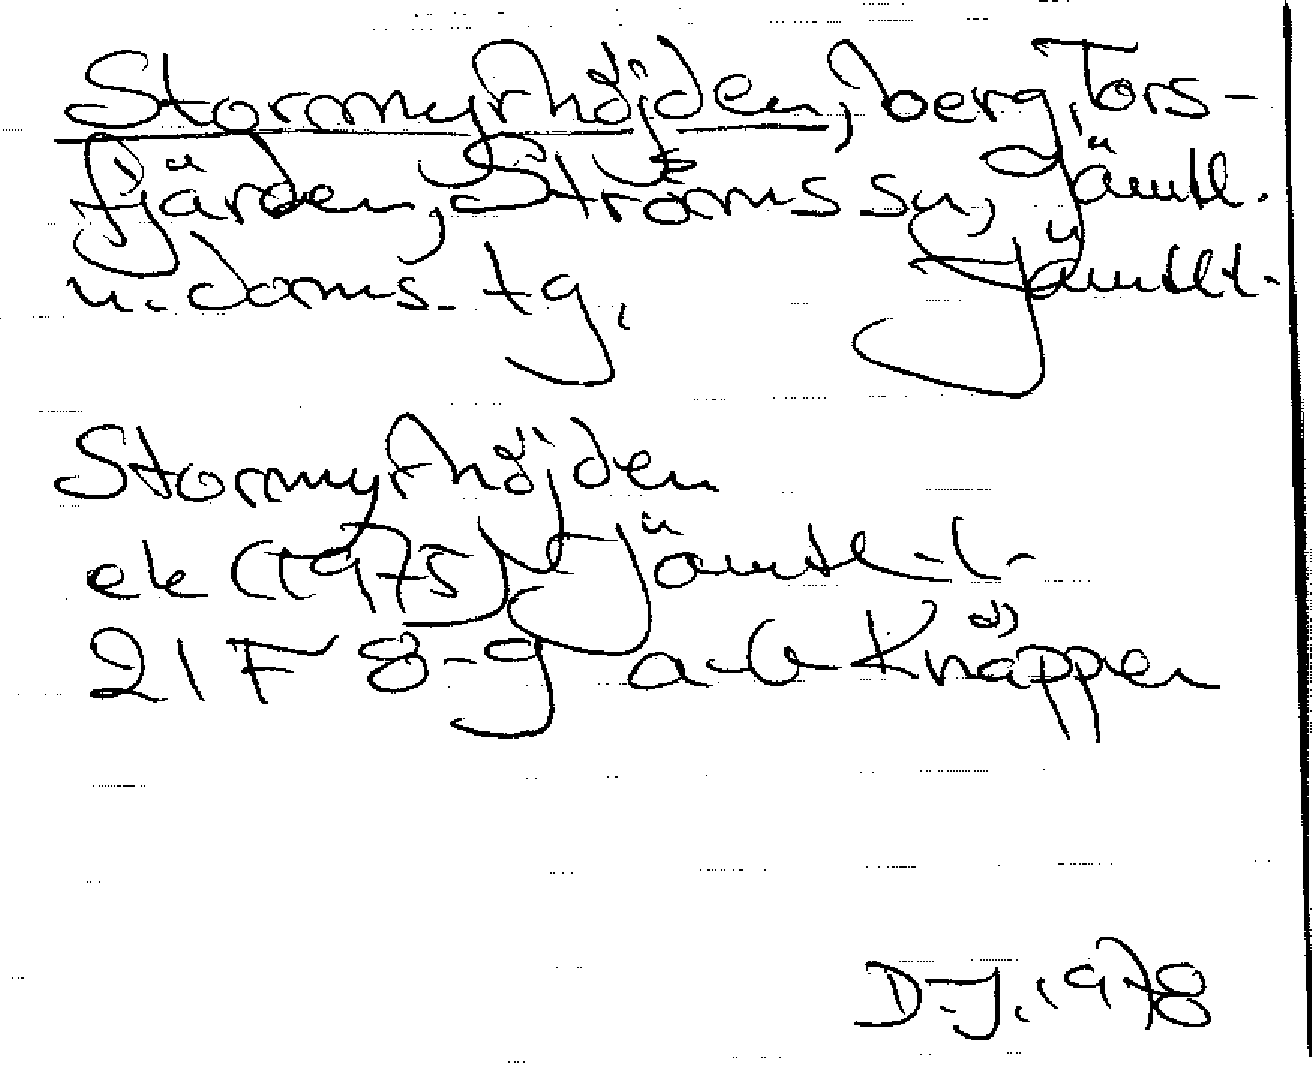 Stormyrhöjden, berg, Tors-
fjärden, Ströms sn, Jämtl.
n. doms. tg, Jämtl.
Stormyrhöjden
ek (1975) Jämtl. l.
21 F 8-9 a-b Knäppen
D-J. 1978